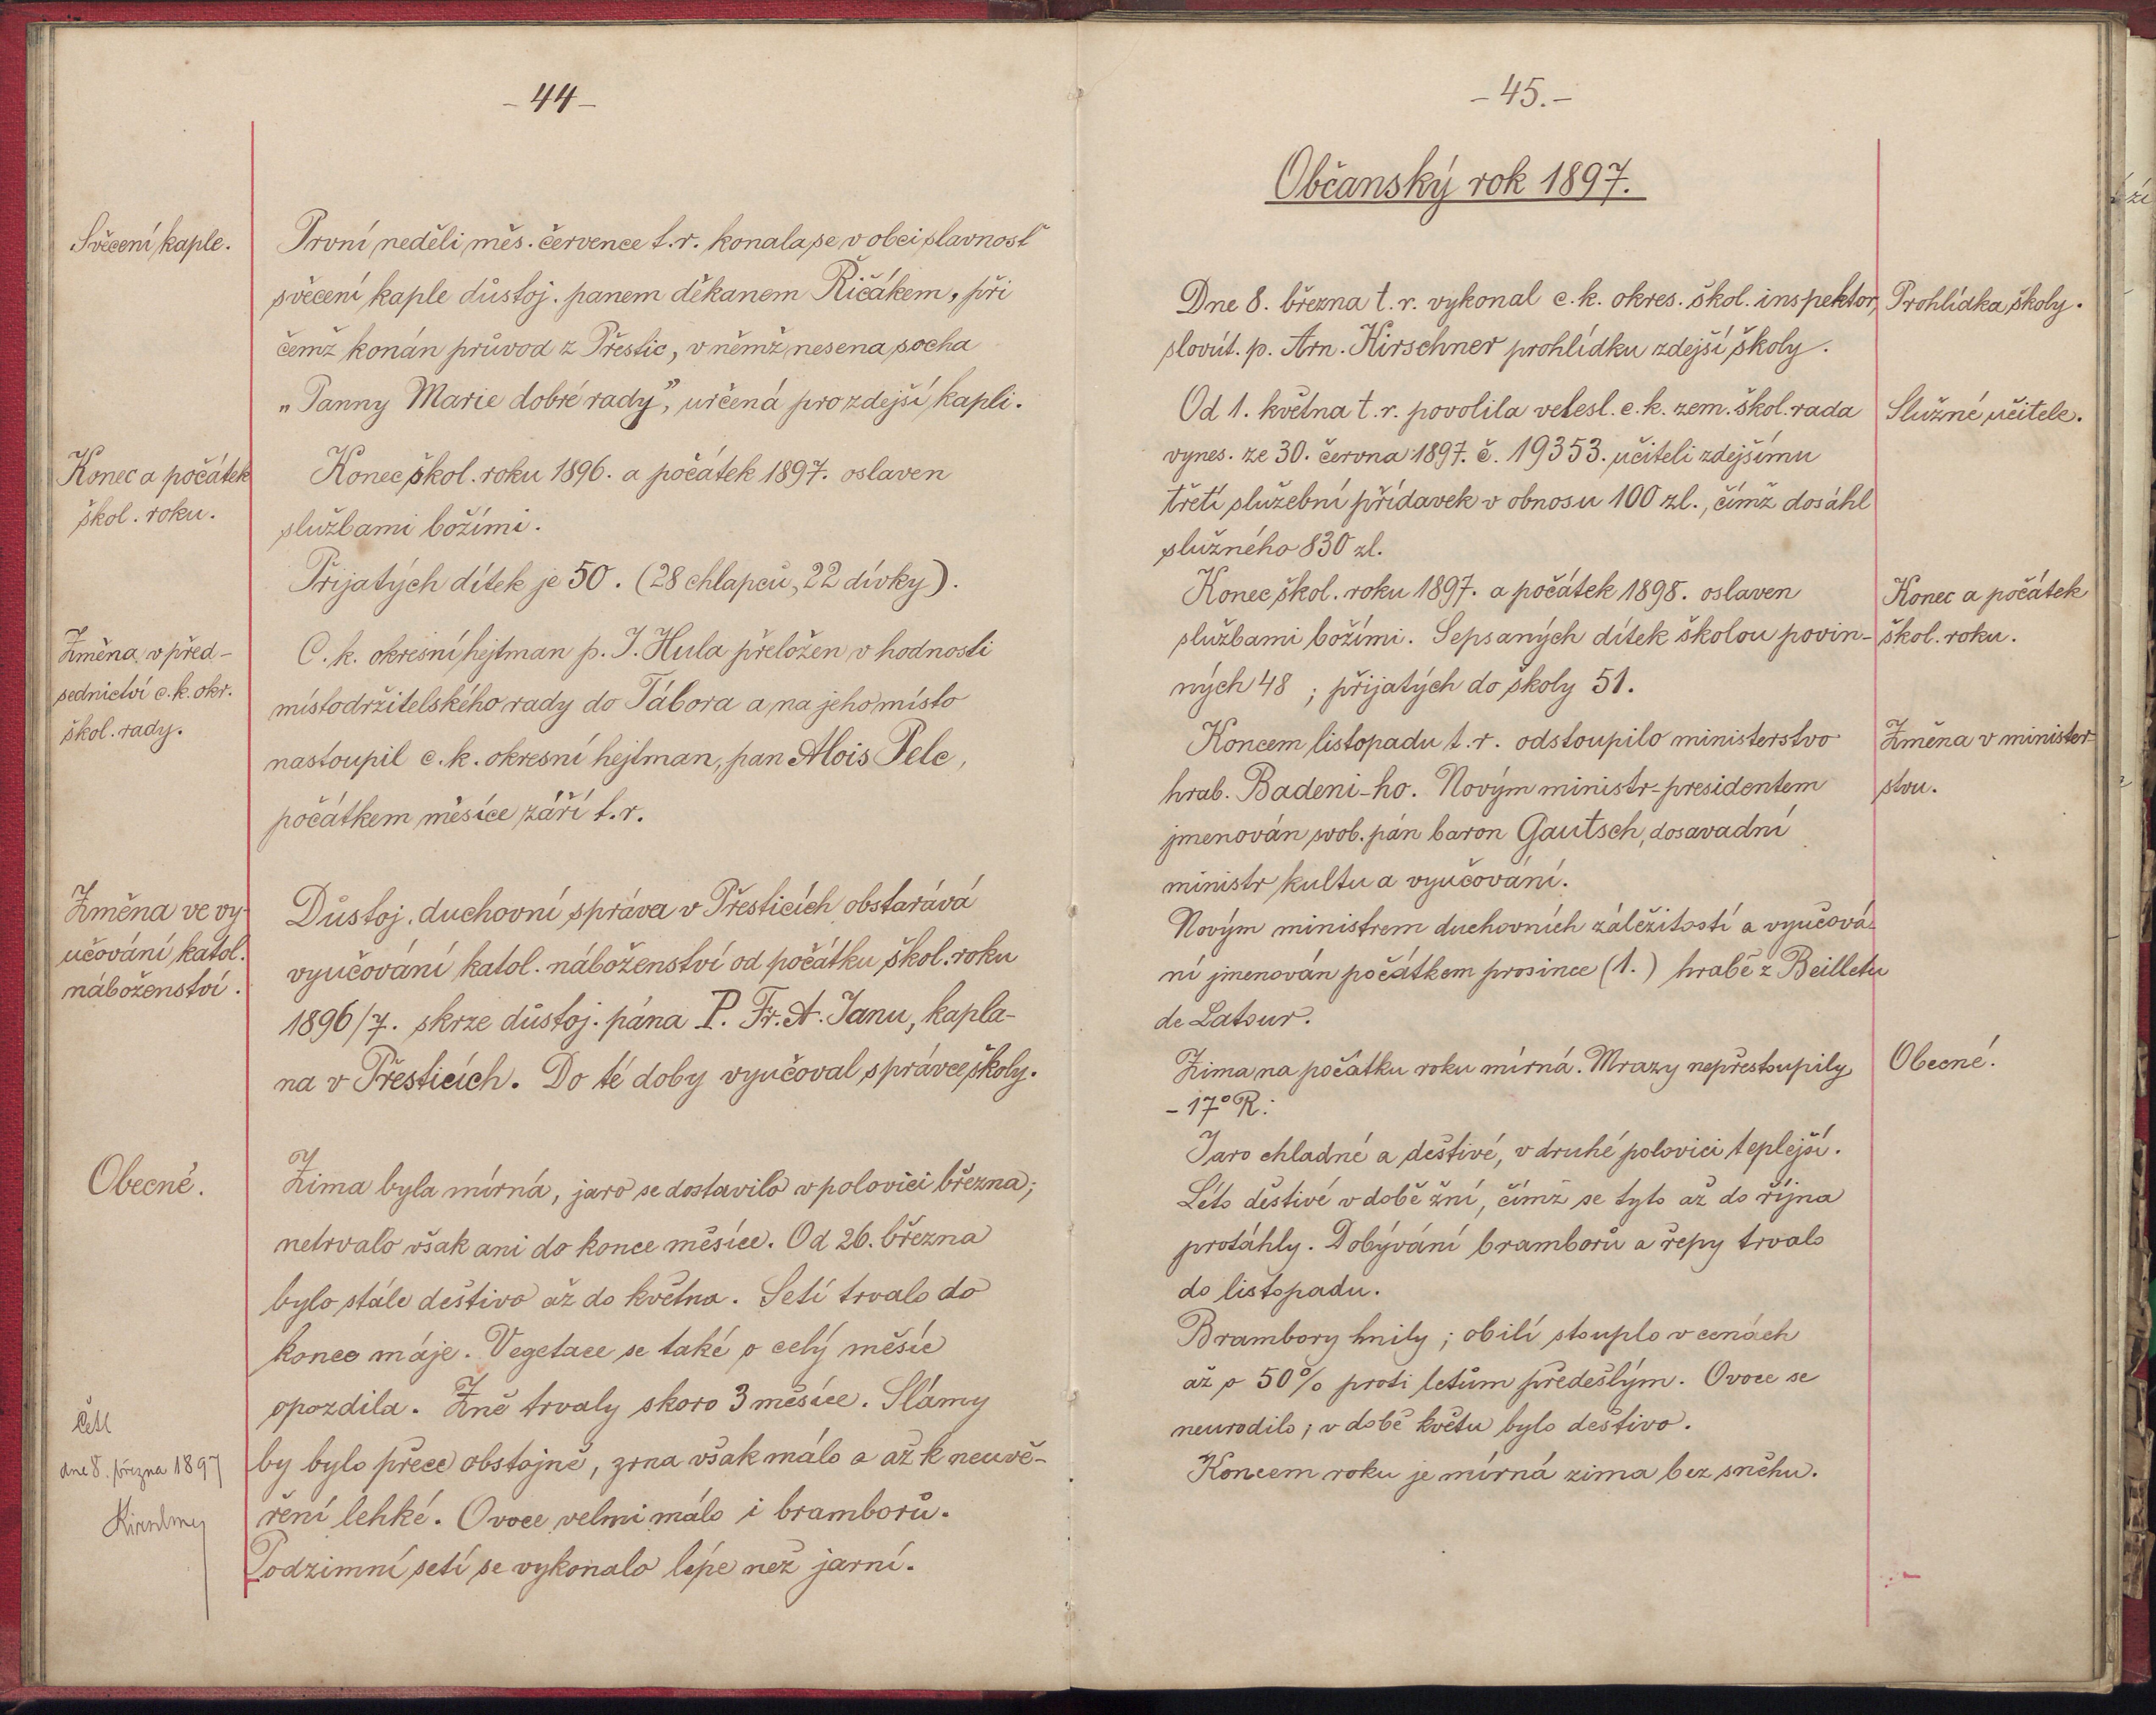 - 44 -
Svěcení kaple.
První neděli měs. července t.r. konala se v obci slavnosť
svěcení kaple důstoj. panem děkanem Řičákem, při
čemž konán průvod z Přestic, v němž nesena socha
„Panny Marie dobré rady", určená pro zdejší kapli.
Konec a počátek
škol. roku.
Konec škol. roku 1896. a počátek 1897. oslaven
službami božími.
Přijatých dítek je 50. (28 chlapců, 22 dívky).
Změna v před-
sednictví c.k. okr.
škol. rady.
C. k. okresní hejtman p. J. Hula přeložen v hodnosti
místodržitelského rady do Tábora a na jeho místo
nastoupil c. k. okresní hejtman, pan Alois Pelc,
počátkem měsíce září t.r.
Změna ve vy-
učování katol.
náboženství.
Důstoj. duchovní správa v Přesticích obstarává
vyučování katol. náboženství od počátku škol. roku
1896/7. skrze důstoj. pána P. Fr. A. Janu, kapla-
na v Přesticích. Do té doby vyučoval správce školy.
Obecné.
Zima byla mírná, jaro se dostavilo v polovici března;
netrvalo však ani do konce měsíce. Od 26. března
bylo stále deštivo až do května. Setí trvalo do
konce máje. Vegetace se také o celý měsíc
opozdila. Žně trvaly skoro 3 měsíce. Slámy
by bylo přece obstojně, zrna však málo a až k neuvě-
ření lehké. Ovoce velmi málo i bramborů.
Podzimní setí se vykonalo lépe než jarní.
Četl
dne 8. března 1897
Kirschner
- 45. -
Občanský rok 1897.
Dne 8. března t. r. vykonal c. k. okres. škol. inspektor,
slovút. p. Arn. Kirschner prohlídku zdejší školy.
Prohlídka školy.
Od 1. května t. r. povolila velesl. c. k. zem. škol. rada
vynes. ze 30. června 1897. č. 19353. učiteli zdejšímu
třetí služební přídavek v obnosu 100 zl., čímž dosáhl
služného 830 zl.
Služné učitele.
Konec škol. roku 1897. a počátek 1898. oslaven
službami božími. Sepsaných dítek školou povin-
ných 48 ; přijatých do školy 51.
Konec a počátek
škol. roku.
Koncem listopadu t. r. odstoupilo ministerstvo
hrab. Badeni-ho. Novým ministr-presidentem
jmenován svob. pán baron Gautsch, dosavadní
ministr kultu a vyučování.
Změna v minister-
stvu.
Novým ministrem duchovních záležitostí a vyučová-
ní jmenován počátkem prosince (1.) hrabě z Beilletu
de Latour.
Zima na počátku roku mírná. Mrazy nepřestoupily
- 17° R.
Obecné.
Jaro chladné a deštivé, v druhé polovici teplejší.
Léto deštivé v době žní, čímž se tyto až do října
protáhly. Dobývání bramborů a řepy trvalo
do listopadu.
Brambory hnily; obilí stouplo v cenách
až o 50% proti letům předešlým. Ovoce se
neurodilo; v době květu bylo deštivo.
Koncem roku je mírná zima bez sněhu.